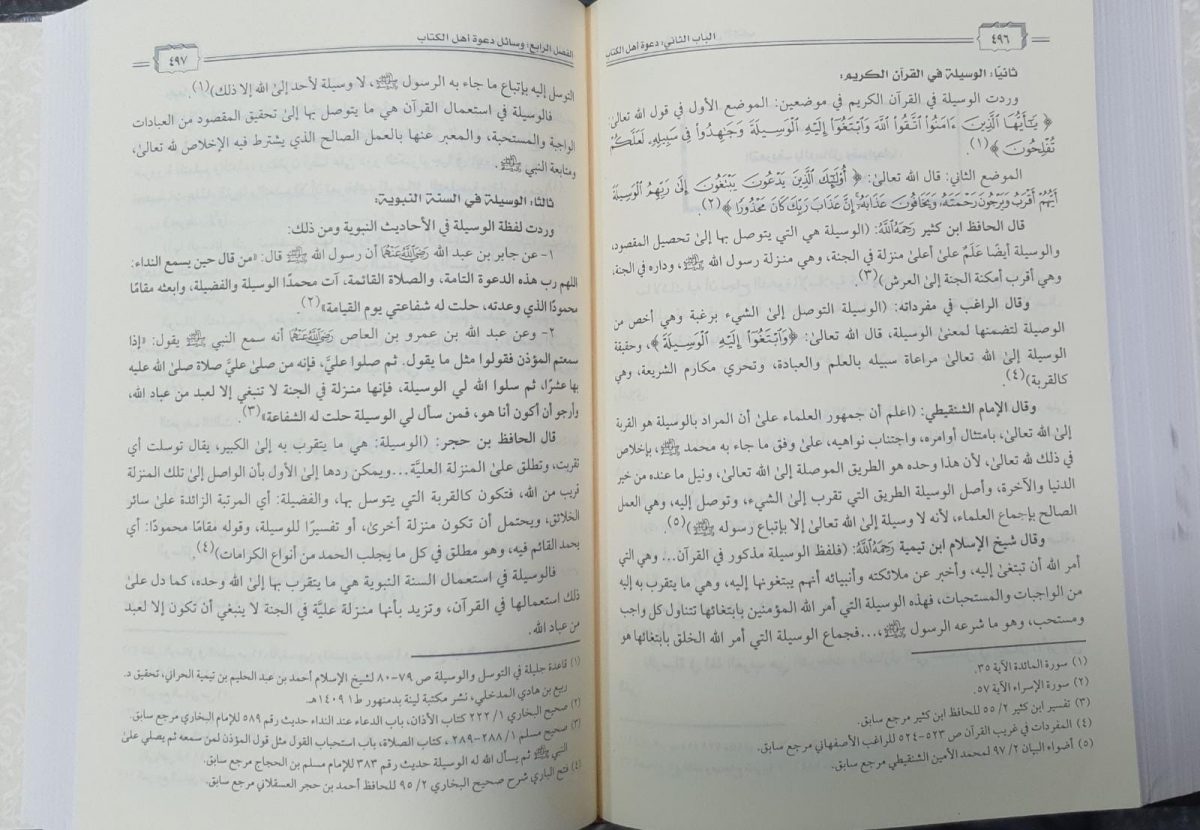 ٤٩٦
الباب الثاني: دعوة أهل الكتاب
ثانيًا: الوسيلة في القرآن الكريم:
وردت الوسيلة في القرآن الكريم في موضعين: الموضع الأول في قول الله تعالىٰ:
﴿ يَٰٓأَيُّهَا ٱلَّذِينَ ءَامَنُوا۟ ٱتَّقُوا۟ ٱللَّهَ وَٱبْتَغُوٓا۟ إِلَيْهِ ٱلْوَسِيلَةَ وَجَٰهِدُوا۟ فِى سَبِيلِهِۦ لَعَلَّكُمْ
تُفْلِحُونَ ﴾(١).
الموضع الثاني: قال الله تعالىٰ: ﴿ أُو۟لَٰٓئِكَ ٱلَّذِينَ يَدْعُونَ يَبْتَغُونَ إِلَىٰ رَبِّهِمُ ٱلْوَسِيلَةَ
أَيُّهُمْ أَقْرَبُ وَيَرْجُونَ رَحْمَتَهُۥ وَيَخَافُونَ عَذَابَهُۥٓ إِنَّ عَذَابَ رَبِّكَ كَانَ مَحْذُورًا ﴾(٢).
قال الحافظ ابن كثير رَحِمَهُ ٱللَّهُ: (الوسيلة هي التي يتوصل بها إلىٰ تحصيل المقصود،
والوسيلة أيضًا عَلَمٌ علىٰ أعلىٰ منزلة في الجنة، وهي منزلة رسول الله ﷺ، وداره في الجنة،
وهي أقرب أمكنة الجنة إلىٰ العرش)(٣).
وقال الراغب في مفرداته: (الوسيلة التوصل إلىٰ الشيء برغبة وهي أخص من
الوصيلة لتضمنها لمعنىٰ الوسيلة، قال الله تعالىٰ: ﴿وَٱبْتَغُوٓا۟ إِلَيْهِ ٱلْوَسِيلَةَ﴾، وحقيقة
الوسيلة إلىٰ الله تعالىٰ مراعاة سبيله بالعلم والعبادة، وتحري مكارم الشريعة، وهي
كالقربة)(٤).
وقال الإمام الشنقيطي: (اعلم أن جمهور العلماء علىٰ أن المراد بالوسيلة هو القربة
إلىٰ الله تعالىٰ، بامتثال أوامره، واجتناب نواهيه، علىٰ وفق ما جاء به محمد ﷺ، بإخلاص
في ذلك لله تعالىٰ، لأن هذا وحده هو الطريق الموصلة إلىٰ الله تعالىٰ، ونيل ما عنده من خير
الدنيا والآخرة، وأصل الوسيلة الطريق التي تقرب إلىٰ الشيء، وتوصل إليه، وهي العمل
الصالح بإجماع العلماء، لأنه لا وسيلة إلىٰ الله تعالىٰ إلا بإتباع رسوله ﷺ)(٥).
وقال شيخ الإسلام ابن تيمية رَحِمَهُ ٱللَّهُ: (فلفظ الوسيلة مذكور في القرآن... وهي التي
أمر الله أن تبتغىٰ إليه، وأخبر عن ملائكته وأنبيائه أنهم يبتغونها إليه، وهي ما يتقرب به إليه
من الواجبات والمستحبات، فهذه الوسيلة التي أمر الله المؤمنين بابتغائها تتناول كل واجب
ومستحب، وهو ما شرعه الرسول ﷺ،...فجماع الوسيلة التي أمر الله الخلق بابتغائها هو
(١) سورة المائدة الآية ٣٥.
(٢) سورة الإسراء الآية ٥٧.
(٣) تفسير ابن كثير ٢/ ٥٥ للحافظ ابن كثير مرجع سابق.
(٤) المفردات في غريب القرآن ص ٥٢٣-٥٢٤ للراغب الأصفهاني مرجع سابق.
(٥) أضواء البيان ٢/ ٩٧ لمحمد الأمين الشنقيطي مرجع سابق.
الفصل الرابع: وسائل دعوة أهل الكتاب
٤٩٧
التوسل إليه بإتباع ما جاء به الرسول ﷺ، لا وسيلة لأحد إلىٰ الله إلا ذلك)(١).
فالوسيلة في استعمال القرآن هي ما يتوصل بها إلىٰ تحقيق المقصود من العبادات
الواجبة والمستحبة، والمعبر عنها بالعمل الصالح الذي يشترط فيه الإخلاص لله تعالىٰ،
ومتابعة النبي ﷺ.
ثالثا: الوسيلة في السنة النبوية:
وردت لفظة الوسيلة في الأحاديث النبوية ومن ذلك:
١- عن جابر بن عبد الله رَضِيَ ٱللَّهُ عَنْهُمَا أن رسول الله ﷺ قال: «من قال حين يسمع النداء:
اللهم رب هذه الدعوة التامة، والصلاة القائمة، آت محمدًا الوسيلة والفضيلة، وابعثه مقامًا
محمودًا الذي وعدته، حلت له شفاعتي يوم القيامة»(٢).
٢- وعن عبد الله بن عمرو بن العاص رَضِيَ ٱللَّهُ عَنْهُمَا أنه سمع النبي ﷺ يقول: «إذا
سمعتم المؤذن فقولوا مثل ما يقول. ثم صلوا عليّ، فإنه من صلىٰ عليَّ صلاة صلىٰ الله عليه
بها عشرًا، ثم سلوا الله لي الوسيلة، فإنها منزلة في الجنة لا تنبغي إلا لعبد من عباد الله،
وأرجو أن أكون أنا هو، فمن سأل لي الوسيلة حلت له الشفاعة»(٣).
قال الحافظ بن حجر: (الوسيلة: هي ما يتقرب به إلىٰ الكبير، يقال توسلت أي
تقربت، وتطلق علىٰ المنزلة العليَّة...ويمكن ردها إلىٰ الأول بأن الواصل إلىٰ تلك المنزلة
قريب من الله، فتكون كالقربة التي يتوسل بها، والفضيلة: أي المرتبة الزائدة علىٰ سائر
الخلائق، ويحتمل أن تكون منزلة أخرىٰ، أو تفسيرًا للوسيلة، وقوله مقامًا محمودًا: أي
يحمد القائم فيه، وهو مطلق في كل ما يجلب الحمد من أنواع الكرامات)(٤).
فالوسيلة في استعمال السنة النبوية هي ما يتقرب بها إلىٰ الله وحده، كما دل علىٰ
ذلك استعمالها في القرآن، وتزيد بأنها منزلة عليَّة في الجنة لا ينبغي أن تكون إلا لعبد
من عباد الله.
(١) قاعدة جليلة في التوسل والوسيلة ص ٧٩-٨٠ لشيخ الإسلام أحمد بن عبد الحليم بن تيمية الحراني، تحقيق د.
ربيع بن هادي المدخلي، نشر مكتبة لينة بدمنهور ط١ ١٤٠٩هـ.
(٢) صحيح البخاري ١/ ٢٢٢ كتاب الأذان، باب الدعاء عند النداء حديث رقم ٥٨٩ للإمام البخاري مرجع سابق.
(٣) صحيح مسلم ١/ ٢٨٨-٢٨٩، كتاب الصلاة، باب استحباب القول مثل قول المؤذن لمن سمعه ثم يصلي علىٰ
النبي ﷺ ثم يسأل الله له الوسيلة حديث رقم ٣٨٣ للإمام مسلم بن الحجاج مرجع سابق.
(٤) فتح الباري شرح صحيح البخاري ٢/ ٩٥ للحافظ أحمد بن حجر العسقلاني مرجع سابق.